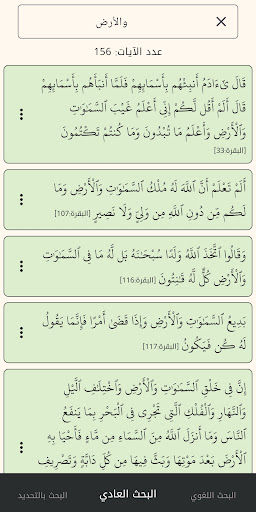 والأرض
عدد الآيات: 156
قَالَ يَٰٓـَٔادَمُ أَنۢبِئْهُم بِأَسْمَآئِهِمْ فَلَمَّآ أَنۢبَأَهُم بِأَسْمَآئِهِمْ
قَالَ أَلَمْ أَقُل لَّكُمْ إِنِّىٓ أَعْلَمُ غَيْبَ ٱلسَّمَٰوَٰتِ
وَٱلْأَرْضِ وَأَعْلَمُ مَا تُبْدُونَ وَمَا كُنتُمْ تَكْتُمُونَ
[البقرة:33]
أَلَمْ تَعْلَمْ أَنَّ ٱللَّهَ لَهُۥ مُلْكُ ٱلسَّمَٰوَٰتِ وَٱلْأَرْضِ وَمَا
لَكُم مِّن دُونِ ٱللَّهِ مِن وَلِىٍّ وَلَا نَصِيرٍ [البقرة:107]
وَقَالُوا۟ ٱتَّخَذَ ٱللَّهُ وَلَدًا سُبْحَٰنَهُۥ بَل لَّهُۥ مَا فِى ٱلسَّمَٰوَٰتِ
وَٱلْأَرْضِ كُلٌّ لَّهُۥ قَٰنِتُونَ [البقرة:116]
بَدِيعُ ٱلسَّمَٰوَٰتِ وَٱلْأَرْضِ وَإِذَا قَضَىٰٓ أَمْرًا فَإِنَّمَا يَقُولُ
لَهُۥ كُن فَيَكُونُ [البقرة:117]
إِنَّ فِى خَلْقِ ٱلسَّمَٰوَٰتِ وَٱلْأَرْضِ وَٱخْتِلَٰفِ ٱلَّيْلِ
وَٱلنَّهَارِ وَٱلْفُلْكِ ٱلَّتِى تَجْرِى فِى ٱلْبَحْرِ بِمَا يَنفَعُ
ٱلنَّاسَ وَمَآ أَنزَلَ ٱللَّهُ مِنَ ٱلسَّمَآءِ مِن مَّآءٍ فَأَحْيَا بِهِ
ٱلْأَرْضَ بَعْدَ مَوْتِهَا وَبَثَّ فِيهَا مِن كُلِّ دَآبَّةٍ وَتَصْرِيفِ
البحث اللغوي
البحث العادي
البحث بالتحديد